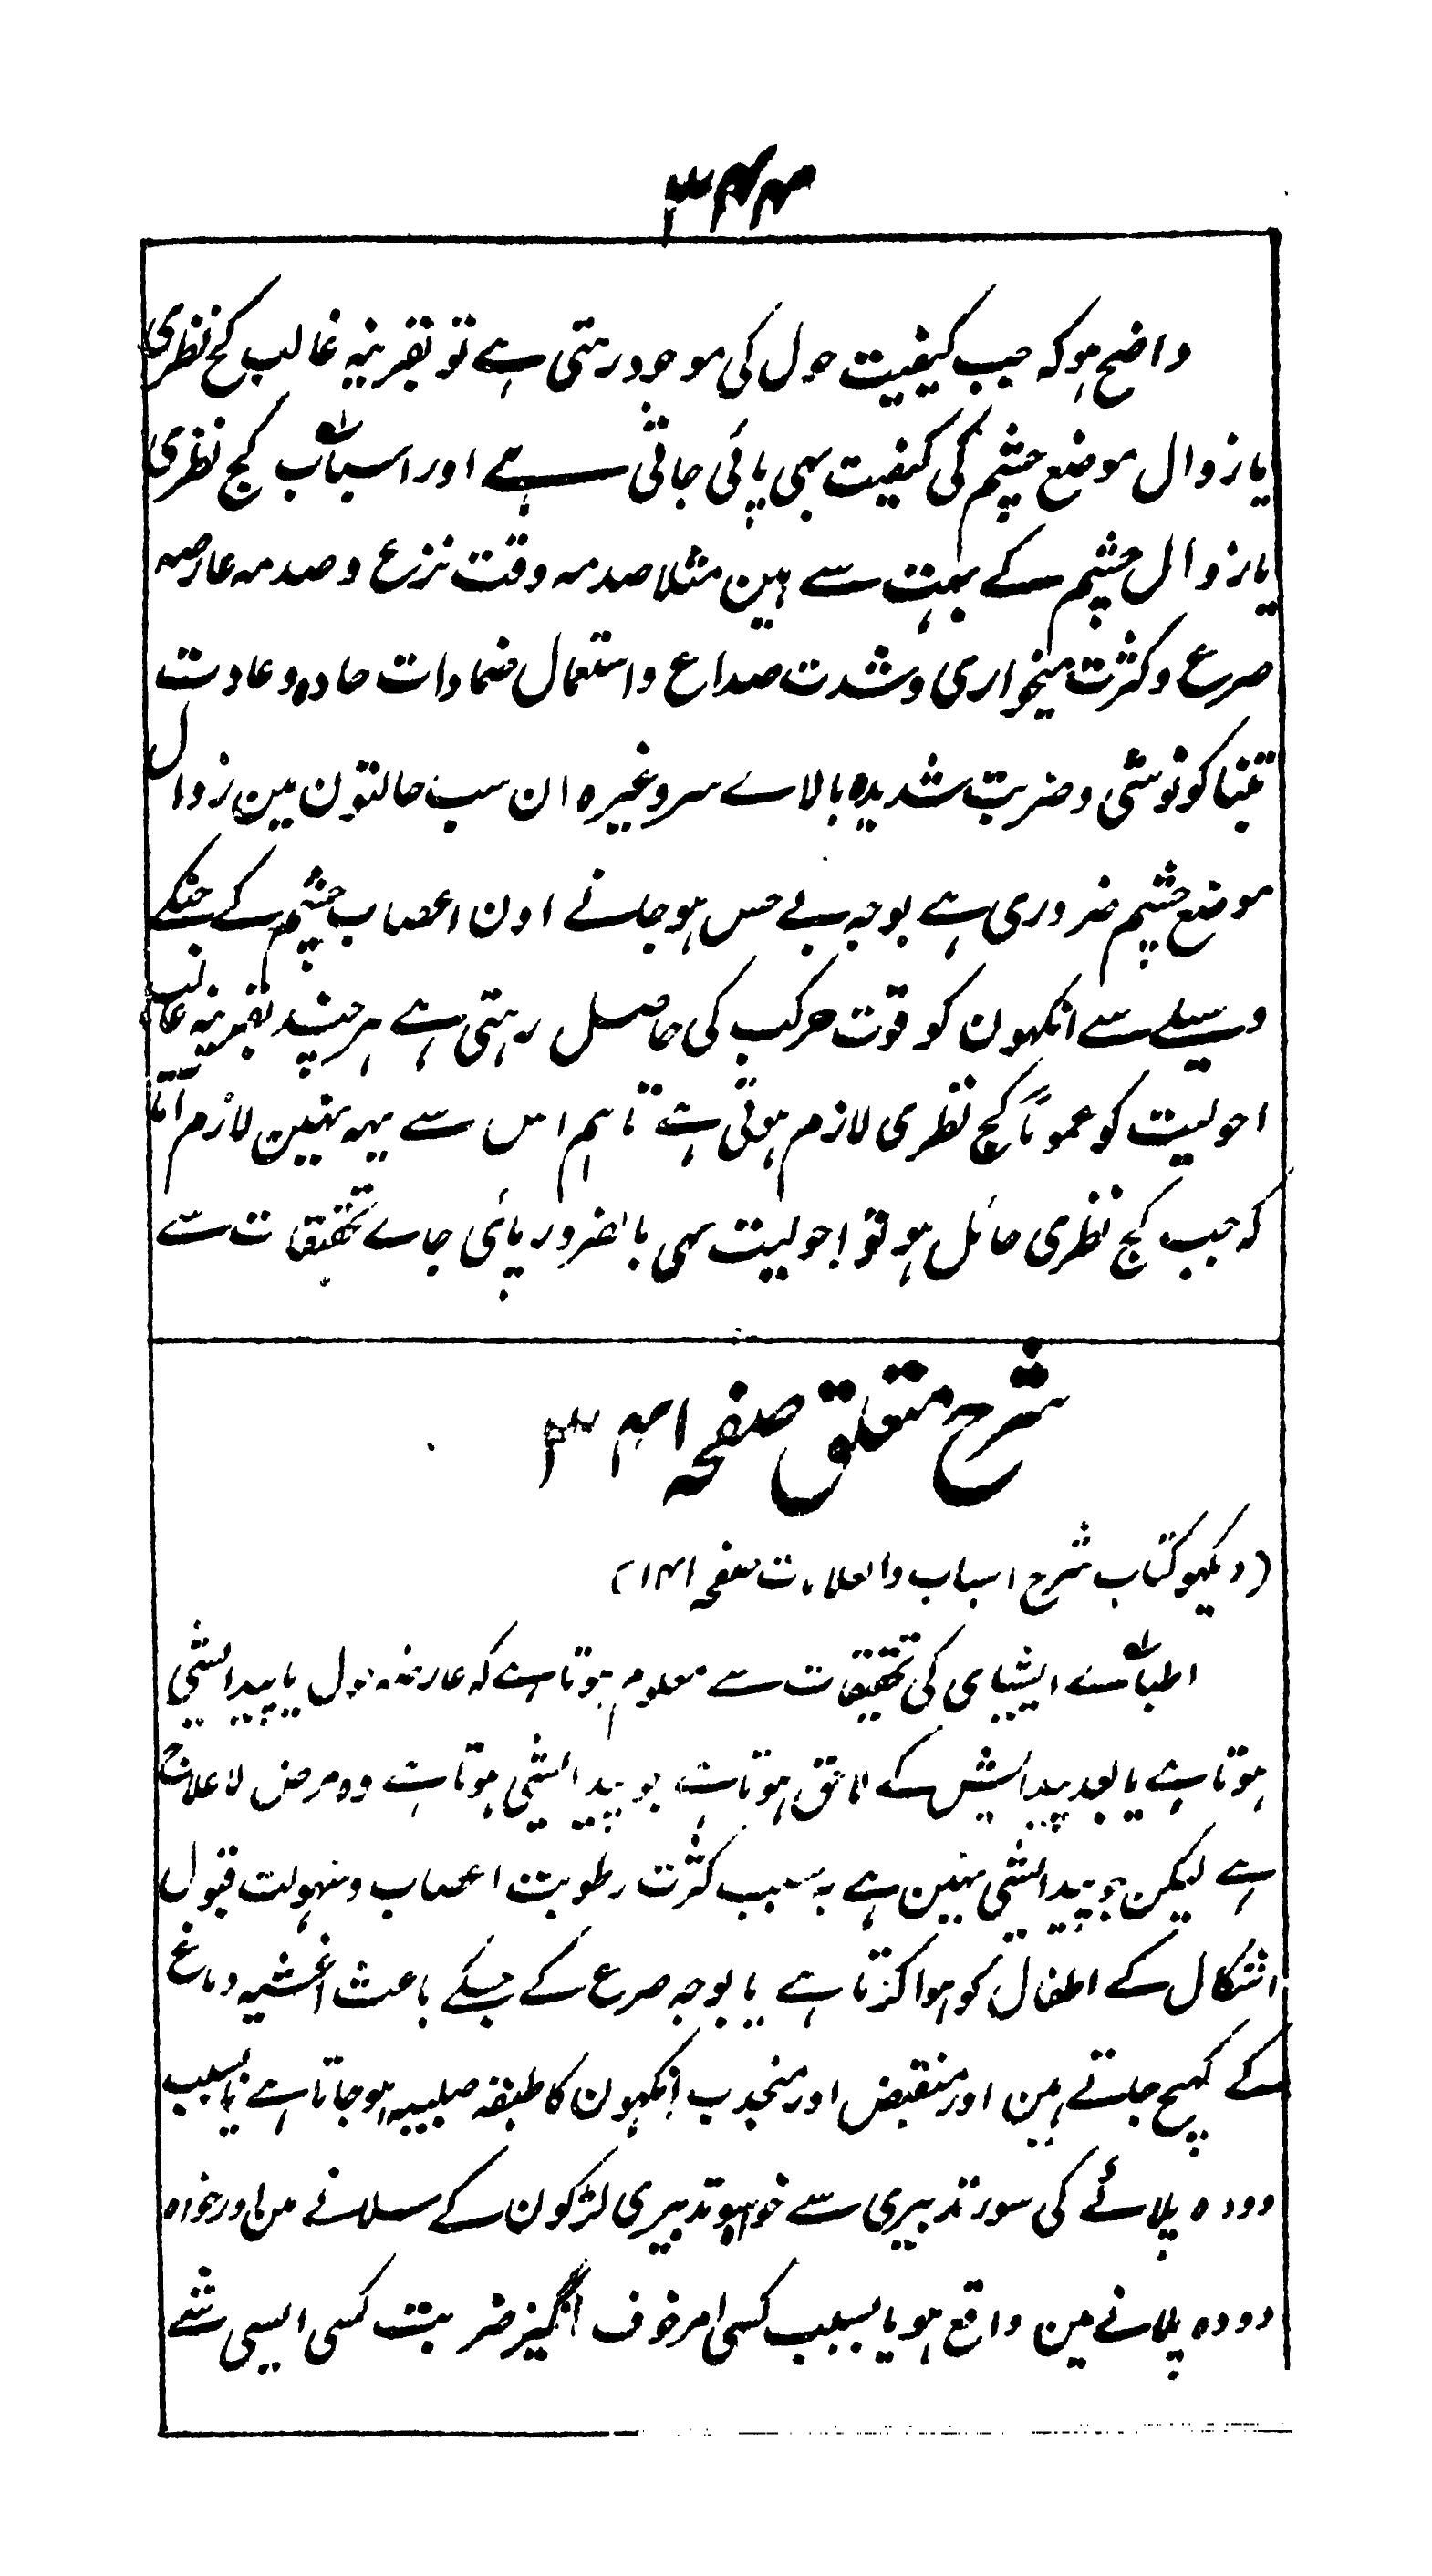 ۳۴۴
واضح ہو کہ جب کیفیت حول کی موجود رہتی ہے تو بقرینہ غالب کج نظری
یا زوال موضع چشم کی کیفیت بہی پائی جاتی ہے اور اسباب کج نظری
یا زوال چشم کے بہت سے ہین مثلا صدمہ وقت نزع و صدمہ عارضہ
صرع و کثرت میخواری و شدت صداع و استعمال ضمادات حادہ و عادت
تنباکو نوشی و ضربت شدیدہ بالاے سر وغیرہ ان سب حالتون مین زوال
موضع چشم ضروری ہے بوجہ بے حس ہو جانے اون اعصاب چشم کے جنکے
وسیلے سے انکہون کو قوت حرکت کی حاصل رہتی ہے ہر چند بقرینہ غالب
احولیت کو عموماً کج نظری لازم ہوتی ہے تاہم اس سے یہہ نہین لازم آتا
کہ جب کج نظری حائل ہو تو احولیت بہی بالضرور پائی جاے تحقیقات سے
شرح متعلق صفحہ ۳۴۱
(دیکہو کتاب شرح اسباب والعلامات صفحہ ۱۴۱)
اطباے ایشیای کی تحقیقات سے معلوم ہوتا ہے کہ عارضہ حول یا پیدایشی
ہوتا ہے یا بعد پیدایش کے لاحق ہوتا ہے جو پیدایشی ہوتا ہے وہ مرض لا علاج
ہے لیکن جو پیدایشی نہین ہے بہ سبب کثرت رطوبت اعصاب و سہولت قبول
اشکال کے اطفال کو ہوا کرتا ہے یا بوجہ صرع کے جسکے باعث اغشیہ دماغ
کے کہچ جاتے ہین اور منقبض اور منجذب انکہون کا طبقہ صلبیہ ہو جاتا ہے یا بسبب
دودہ پلائے کی سوء تدبیری سے خواہ سوء تدبیری لڑکون کے سلانے مین اور خواہ
دودہ پلانے مین واقع ہو یا بسبب کسی امر خوف انگیز ضربت کسی ایسی شے